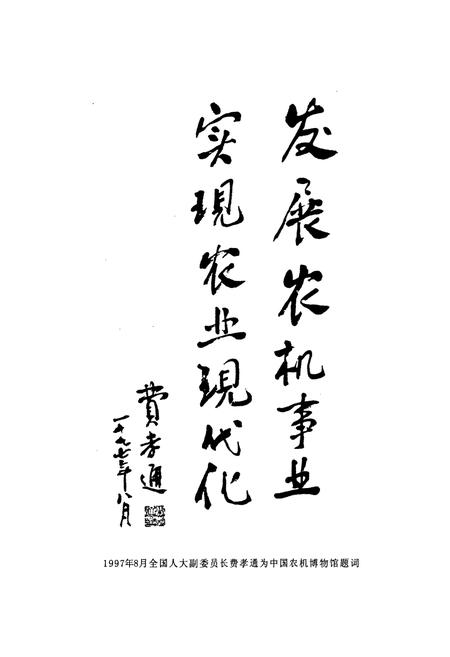 发展农机事业
实现农业现代化
費孝通
一九九七年八月
1997年8月全国人大副委员长费孝通为中国农机博物馆题词